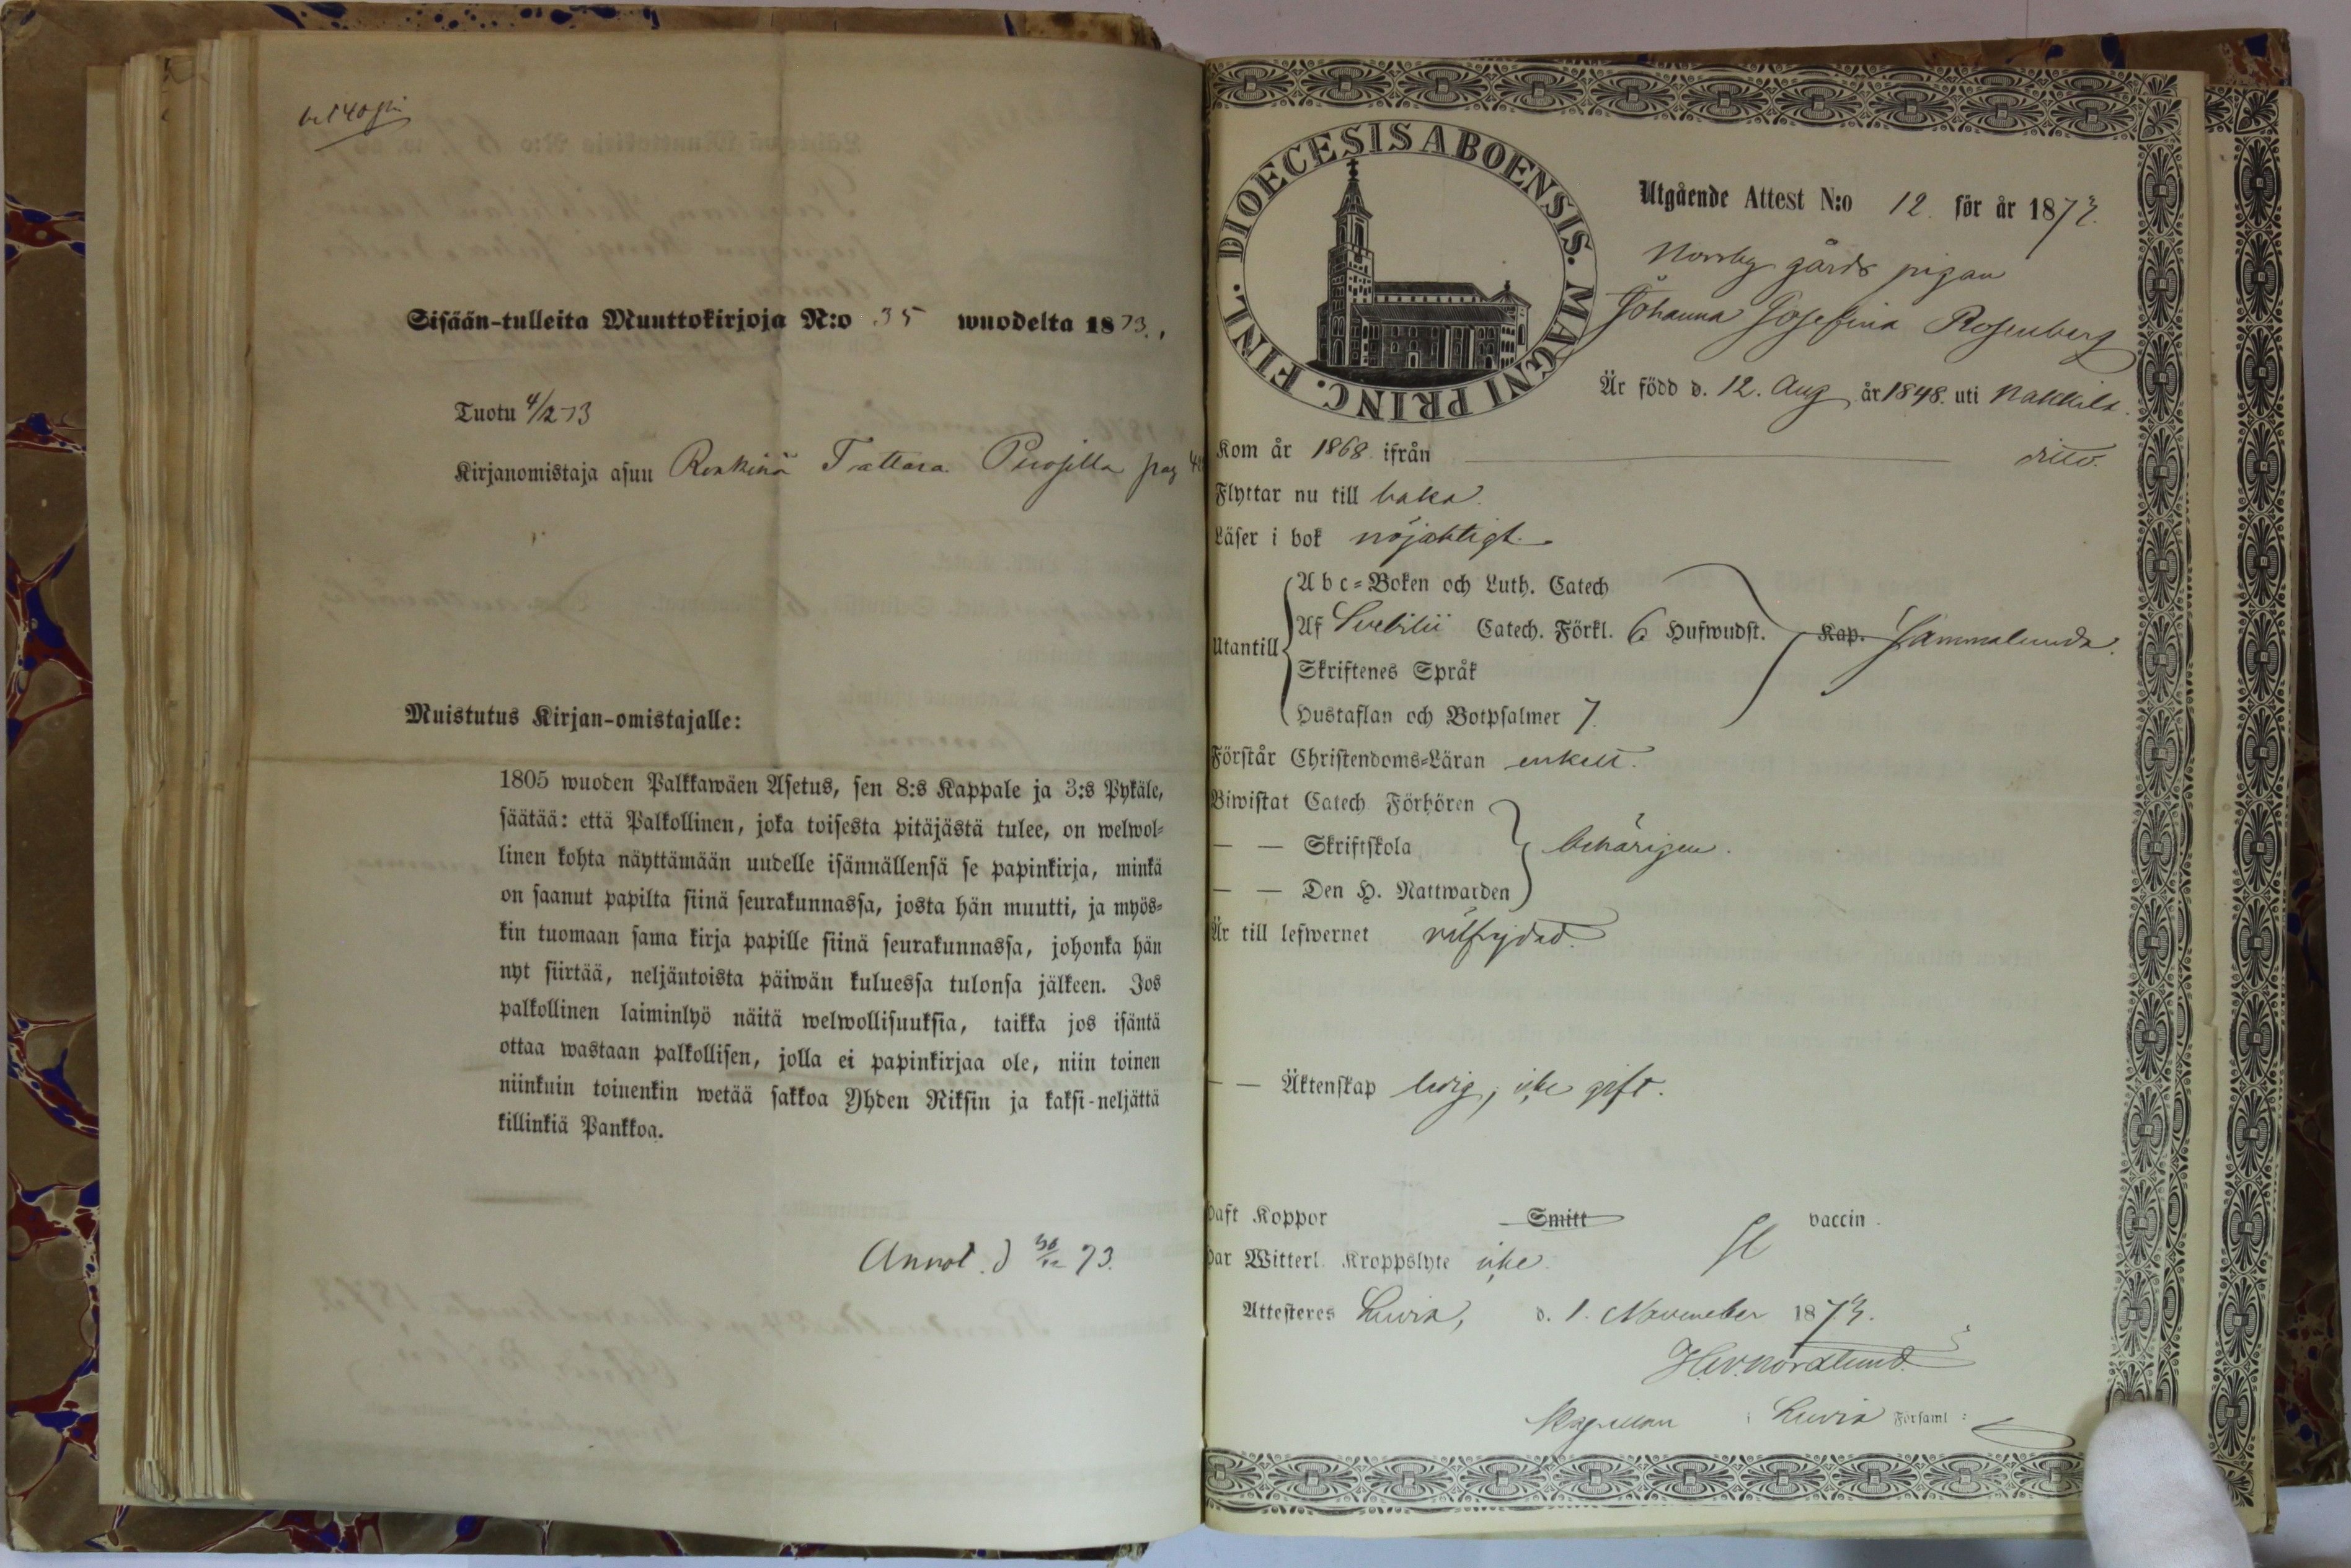 Sisään-tulleita Muuttokirjoja N:o 35 wuodelta 1873.
Tuotu 4/2 73
Kirjanomistaja asuu Renkinä Tattara pag
Muistutus Kirjan-omistajalle:
1805 wuoden Palkkawäen Asetus, sen 8:s Kappale ja 3:s Pykäle,
säätää: että Palkollinen, joka toisesta pitäjästä tulee, on welwol-
linen kohta näyttämään uudelle isännällensä se papinkirja, minkä
on saanut papilta siinä seurakunnassa, josta hän muutti, ja myös-
kin tuomaan sama kirja papille siinä seurakunnassa, johonka hän
nyt siirtää, neljäntoista päiwän kuluessa tulonsa jälkeen. Jos
palkollinen laiminlyö näitä welwollisuuksia, taikka jos isäntä
ottaa wastaan palkollisen, jolla ei papinkirjaa ole, niin toinen
niinkuin toinenkin wetää sakkoa Yhden Riksin ja kaksi-neljättä
killinkiä Pankkoa.
Annot. d 73.
DIOECESIS ABOENSIS. MAGNI PRINC. FINL.
Utgående Attest N:o 12. för år 1873.
Norrby gårds pigan
Johanna Josefina Rosenberg
Är född d. 12. Aug år 1848. uti Nakkila.
Kom år 1868 ifrån dito.
Flyttar nu till baka.
Läser i bok nöjaktigt.
Utantill
Abc-Boken och Luth. Catech
Af Svebilii Catech. Förkl. 6 Hufwudst. Kap. Sammalunda.
Skriftenes Språk
Hustaflan och Botpsalmer 7.
Förstår Christendoms-Läran enkelt.
Biwistat Catech Förhören
— — Skriftskola behörigen.
— — Den H. Nattwarden
Är till lefwernet välfrejdad.
— — Äktenskap ledig, icke gift.
haft Koppor Smitt vaccin.
har Witterl. Kroppslyte icke.
Attesteres Luvia, d. 1. November 1873.
H.W. Nordlund
Kapellan i Luvia Församl: